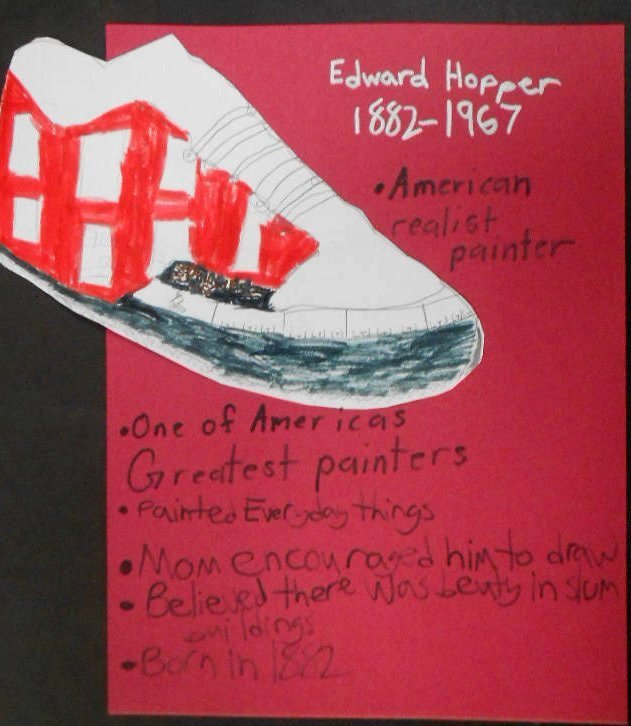 Edward Hopper
1882-1967
•American
realist
painter
•One of Americas
Greatest painters
•Painted Everyday things
•Mom encouraged him to draw
•Believed there was beuty in slum
buildings
•Born in 1882